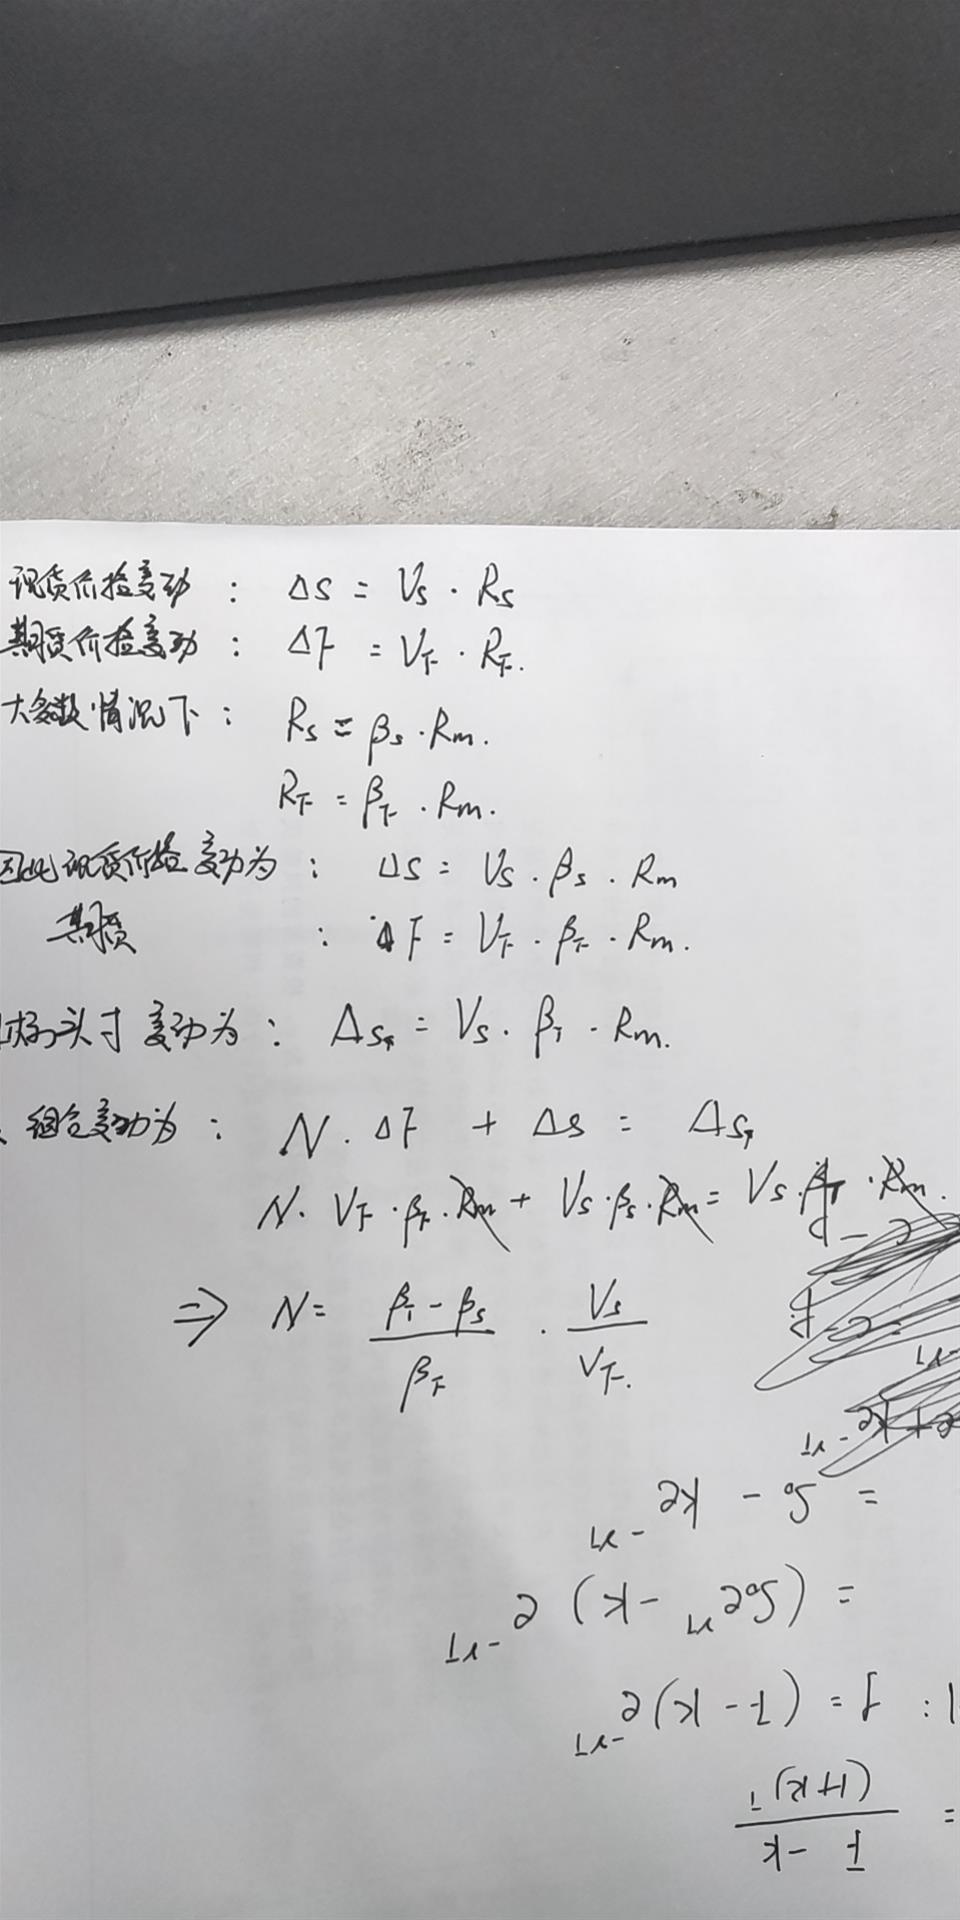 现货价格变动： ΔS = Vs · Rs
期货价格变动： ΔF = V_F · R_F.
大多数情况下： Rs = βs · Rm.
R_F = β_F · Rm.
因此现货价格变动为： ΔS = Vs · βs · Rm
期货 ： ΔF = V_F · β_F · Rm.
目标头寸变动为： Δs_T = Vs · β_T · Rm.
组合变动为： N · ΔF + Δs = Δs_T
N · V_F · β_F · Rm + Vs · βs · Rm = Vs · β_T · Rm.
⇒ N = (β_T - βs)/β_F · Vs/V_F.
= S₀ - Ke^-rT
= (S₀e^rT - K) e^-rT
: f = (F - K)e^-rT
= (F - K)/(1+R)^T